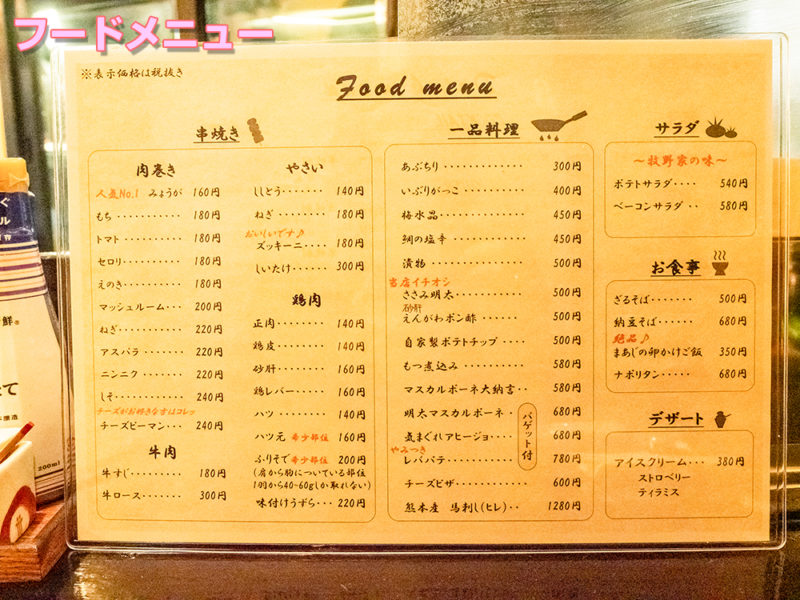 フードメニュー
※表示価格は税抜き
Food menu
串焼き
肉巻き
人気No.1 みょうが 160円
もち ・・・・・・・・・・ 180円
トマト ・・・・・・・・・ 180円
セロリ・・・・・・・・・ 180円
えのき・・・・・・・・・ 180円
マッシュルーム・・・ 200円
ねぎ・・・・・・・・・・・ 220円
アスパラ ・・・・・・・ 220円
ニンニク ・・・・・・・ 220円
しそ・・・・・・・・・・・ 240円
チーズがお好きな方はコレッ
チーズピーマン・・・ 240円
牛肉
牛すじ・・・・・・・・・ 180円
牛ロース・・・・・・・ 300円
やさい
ししとう・・・・・・・ 140円
ねぎ ・・・・・・・・・ 180円
おいしいです♪
ズッキーニ・・・・ 180円
しいたけ・・・・・・・ 300円
鶏肉
正肉・・・・・・・・・ 140円
鶏皮・・・・・・・・・ 140円
砂肝・・・・・・・・・ 160円
鶏レバー・・・・・・ 160円
ハツ ・・・・・・・・・ 140円
ハツ元 希少部位 160円
ふりそで希少部位 200円
(肩から胸についている部位
1羽から40~60gしか取れない)
味付けうずら・・・ 220円
一品料理
あぶちり ・・・・・・・・・・・ 300円
いぶりがっこ ・・・・・・・・ 400円
梅水晶・・・・・・・・・・・・ 450円
鯛の塩辛 ・・・・・・・・・・ 450円
漬物 ・・・・・・・・・・・・・ 500円
当店イチオシ
ささみ明太・・・・・・・・・ 500円
砂肝
えんがわポン酢 ・・・・・・ 500円
自家製ポテトチップ ・・・ 500円
もつ煮込み ・・・・・・・・ 580円
マスカルポーネ大納言・・ 580円
明太マスカルポーネ ・ 680円
気まぐれアヒージョ・・・ 680円
やみつき
レバパテ ・・・・・・・・ 780円
バゲット付
チーズピザ ・・・・・・・・ 600円
熊本産 馬刺し(ヒレ)・・ 1280円
サラダ
～牧野家の味～
ポテトサラダ・・・・ 540円
ベーコンサラダ ・・ 580円
お食事
ざるそば・・・・・・・ 500円
納豆そば・・・・・・ 680円
絶品♪
まあじの卵かけご飯 350円
ナポリタン・・・・・ 680円
デザート
アイスクリーム・・・ 380円
ストロベリー
ティラミス
200ml